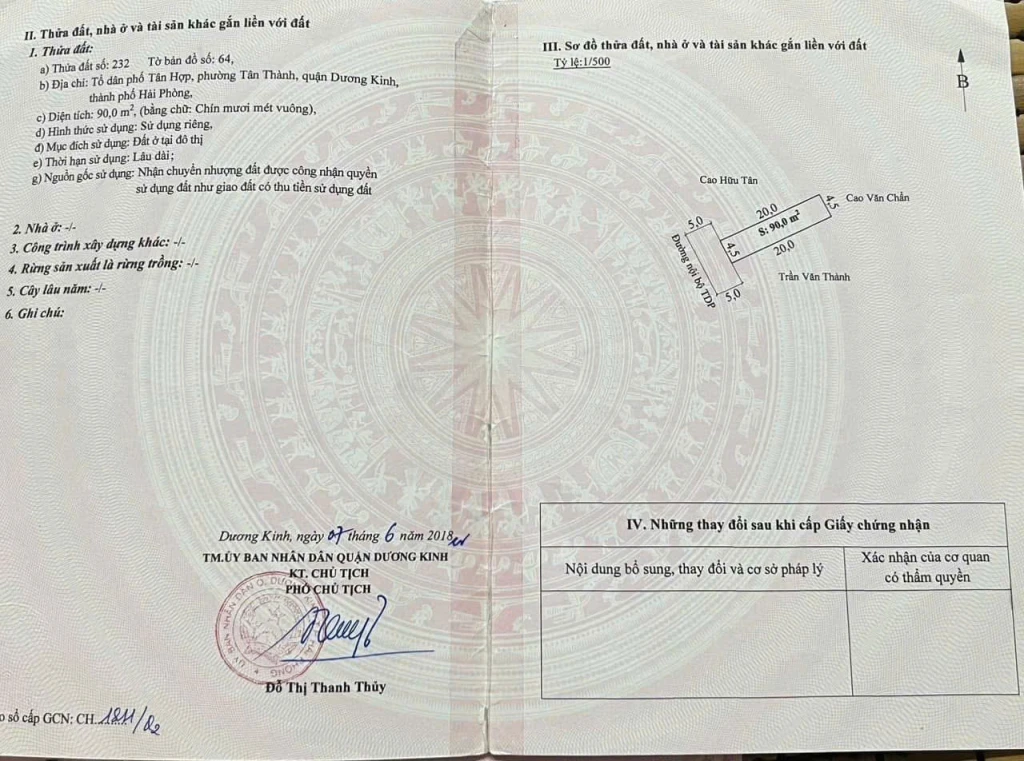 II. Thửa đất, nhà ở và tài sản khác gắn liền với đất
1. Thửa đất:
a) Thửa đất số: 232 Tờ bản đồ số: 64,
b) Địa chỉ: Tổ dân phố Tân Hợp, phường Tân Thành, quận Dương Kinh,
thành phố Hải Phòng,
c) Diện tích: 90,0 m², (bằng chữ: Chín mươi mét vuông),
d) Hình thức sử dụng: Sử dụng riêng,
đ) Mục đích sử dụng: Đất ở tại đô thị
e) Thời hạn sử dụng: Lâu dài;
g) Nguồn gốc sử dụng: Nhận chuyển nhượng đất được công nhận quyền
sử dụng đất như giao đất có thu tiền sử dụng đất
2. Nhà ở: -/-
3. Công trình xây dựng khác: -/-
4. Rừng sản xuất là rừng trồng: -/-
5. Cây lâu năm: -/-
6. Ghi chú:
Dương Kinh, ngày 07 tháng 6 năm 2018
TM.ỦY BAN NHÂN DÂN QUẬN DƯƠNG KINH
KT. CHỦ TỊCH
PHÓ CHỦ TỊCH
Đỗ Thị Thanh Thủy
o sổ cấp GCN: CH
III. Sơ đồ thửa đất, nhà ở và tài sản khác gắn liền với đất
Tỷ lệ:1/500
B
Cao Hữu Tân
Cao Văn Chẩn
20,0
4,5
S: 90,0 m²
5,0
4,5
20,0
Đường nội bộ TDP
Trần Văn Thành
5,0
IV. Những thay đổi sau khi cấp Giấy chứng nhận
Nội dung bổ sung, thay đổi và cơ sở pháp lý
Xác nhận của cơ quan
có thẩm quyền